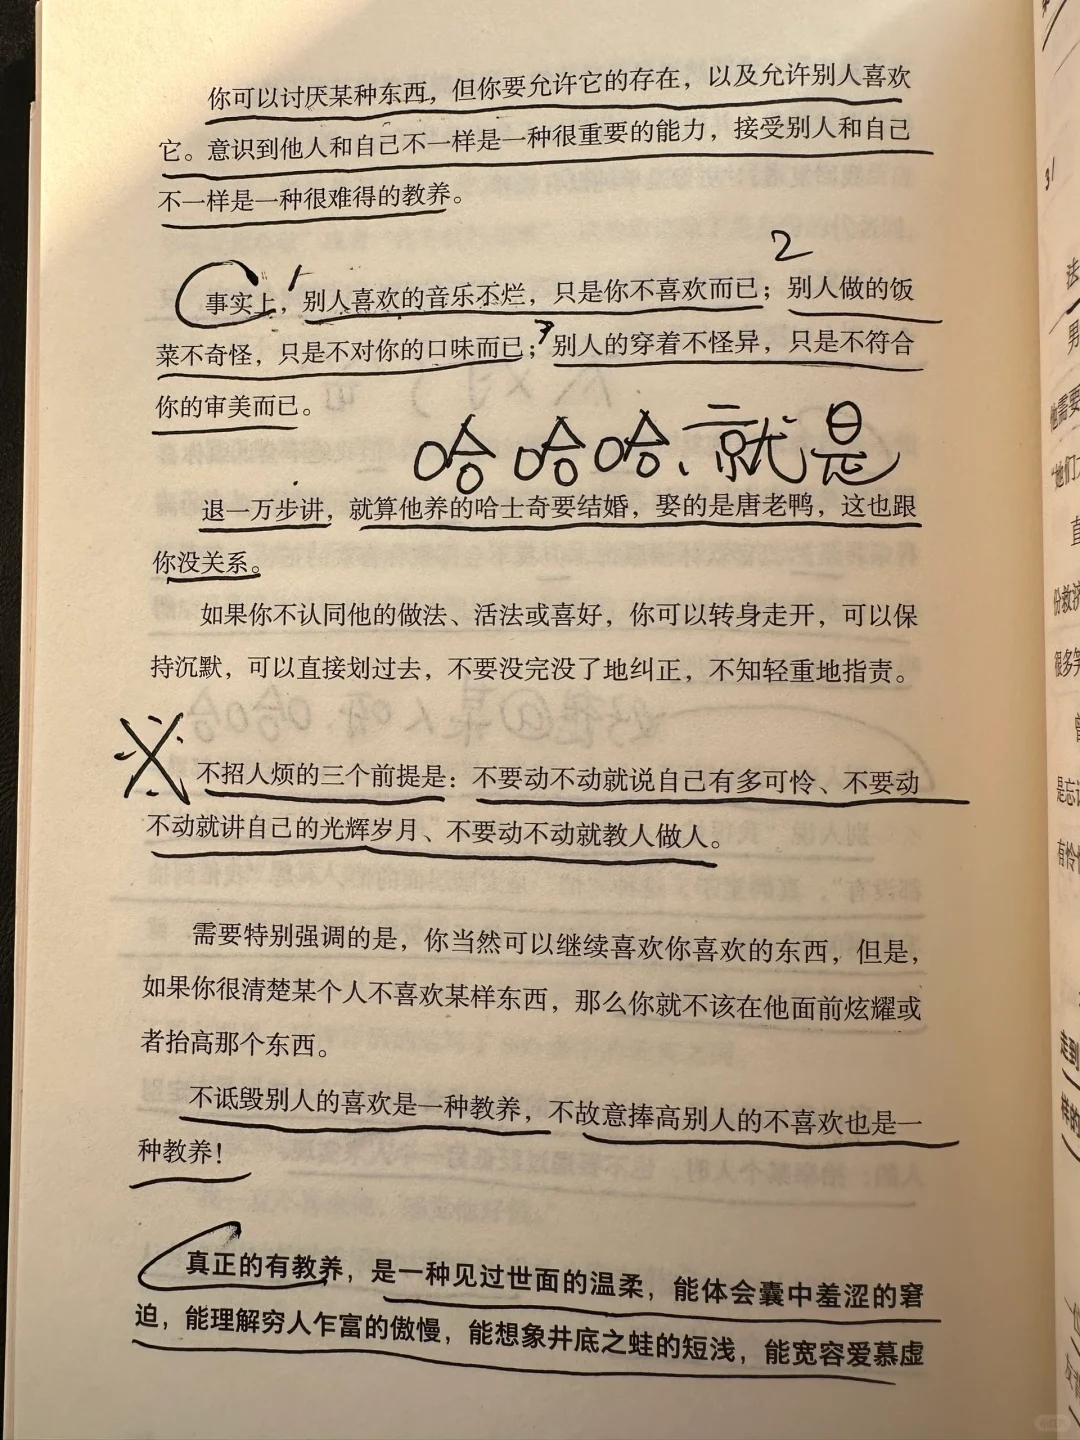 你可以讨厌某种东西，但你要允许它的存在，以及允许别人喜欢
它。意识到他人和自己不一样是一种很重要的能力，接受别人和自己
不一样是一种很难得的教养。
2
1
事实上，别人喜欢的音乐不烂，只是你不喜欢而已；别人做的饭
菜不奇怪，只是不对你的口味而已；别人的穿着不怪异，只是不符合
3
你的审美而已。
哈哈哈、就是
退一万步讲，就算他养的哈士奇要结婚，娶的是唐老鸭，这也跟
你没关系。
如果你不认同他的做法、活法或喜好，你可以转身走开，可以保
持沉默，可以直接划过去，不要没完没了地纠正，不知轻重地指责。
不招人烦的三个前提是：不要动不动就说自己有多可怜、不要动
不动就讲自己的光辉岁月、不要动不动就教人做人。
需要特别强调的是，你当然可以继续喜欢你喜欢的东西，但是，
如果你很清楚某个人不喜欢某样东西，那么你就不该在他面前炫耀或
者抬高那个东西。
不诋毁别人的喜欢是一种教养，不故意捧高别人的不喜欢也是一
种教养！
真正的有教养，是一种见过世面的温柔，能体会囊中羞涩的窘
迫，能理解穷人乍富的傲慢，能想象井底之蛙的短浅，能宽容爱慕虚
31
法
男
他需要
“她们
直
份救济
很多笑
曾
是忘记
有怜
走到
样的